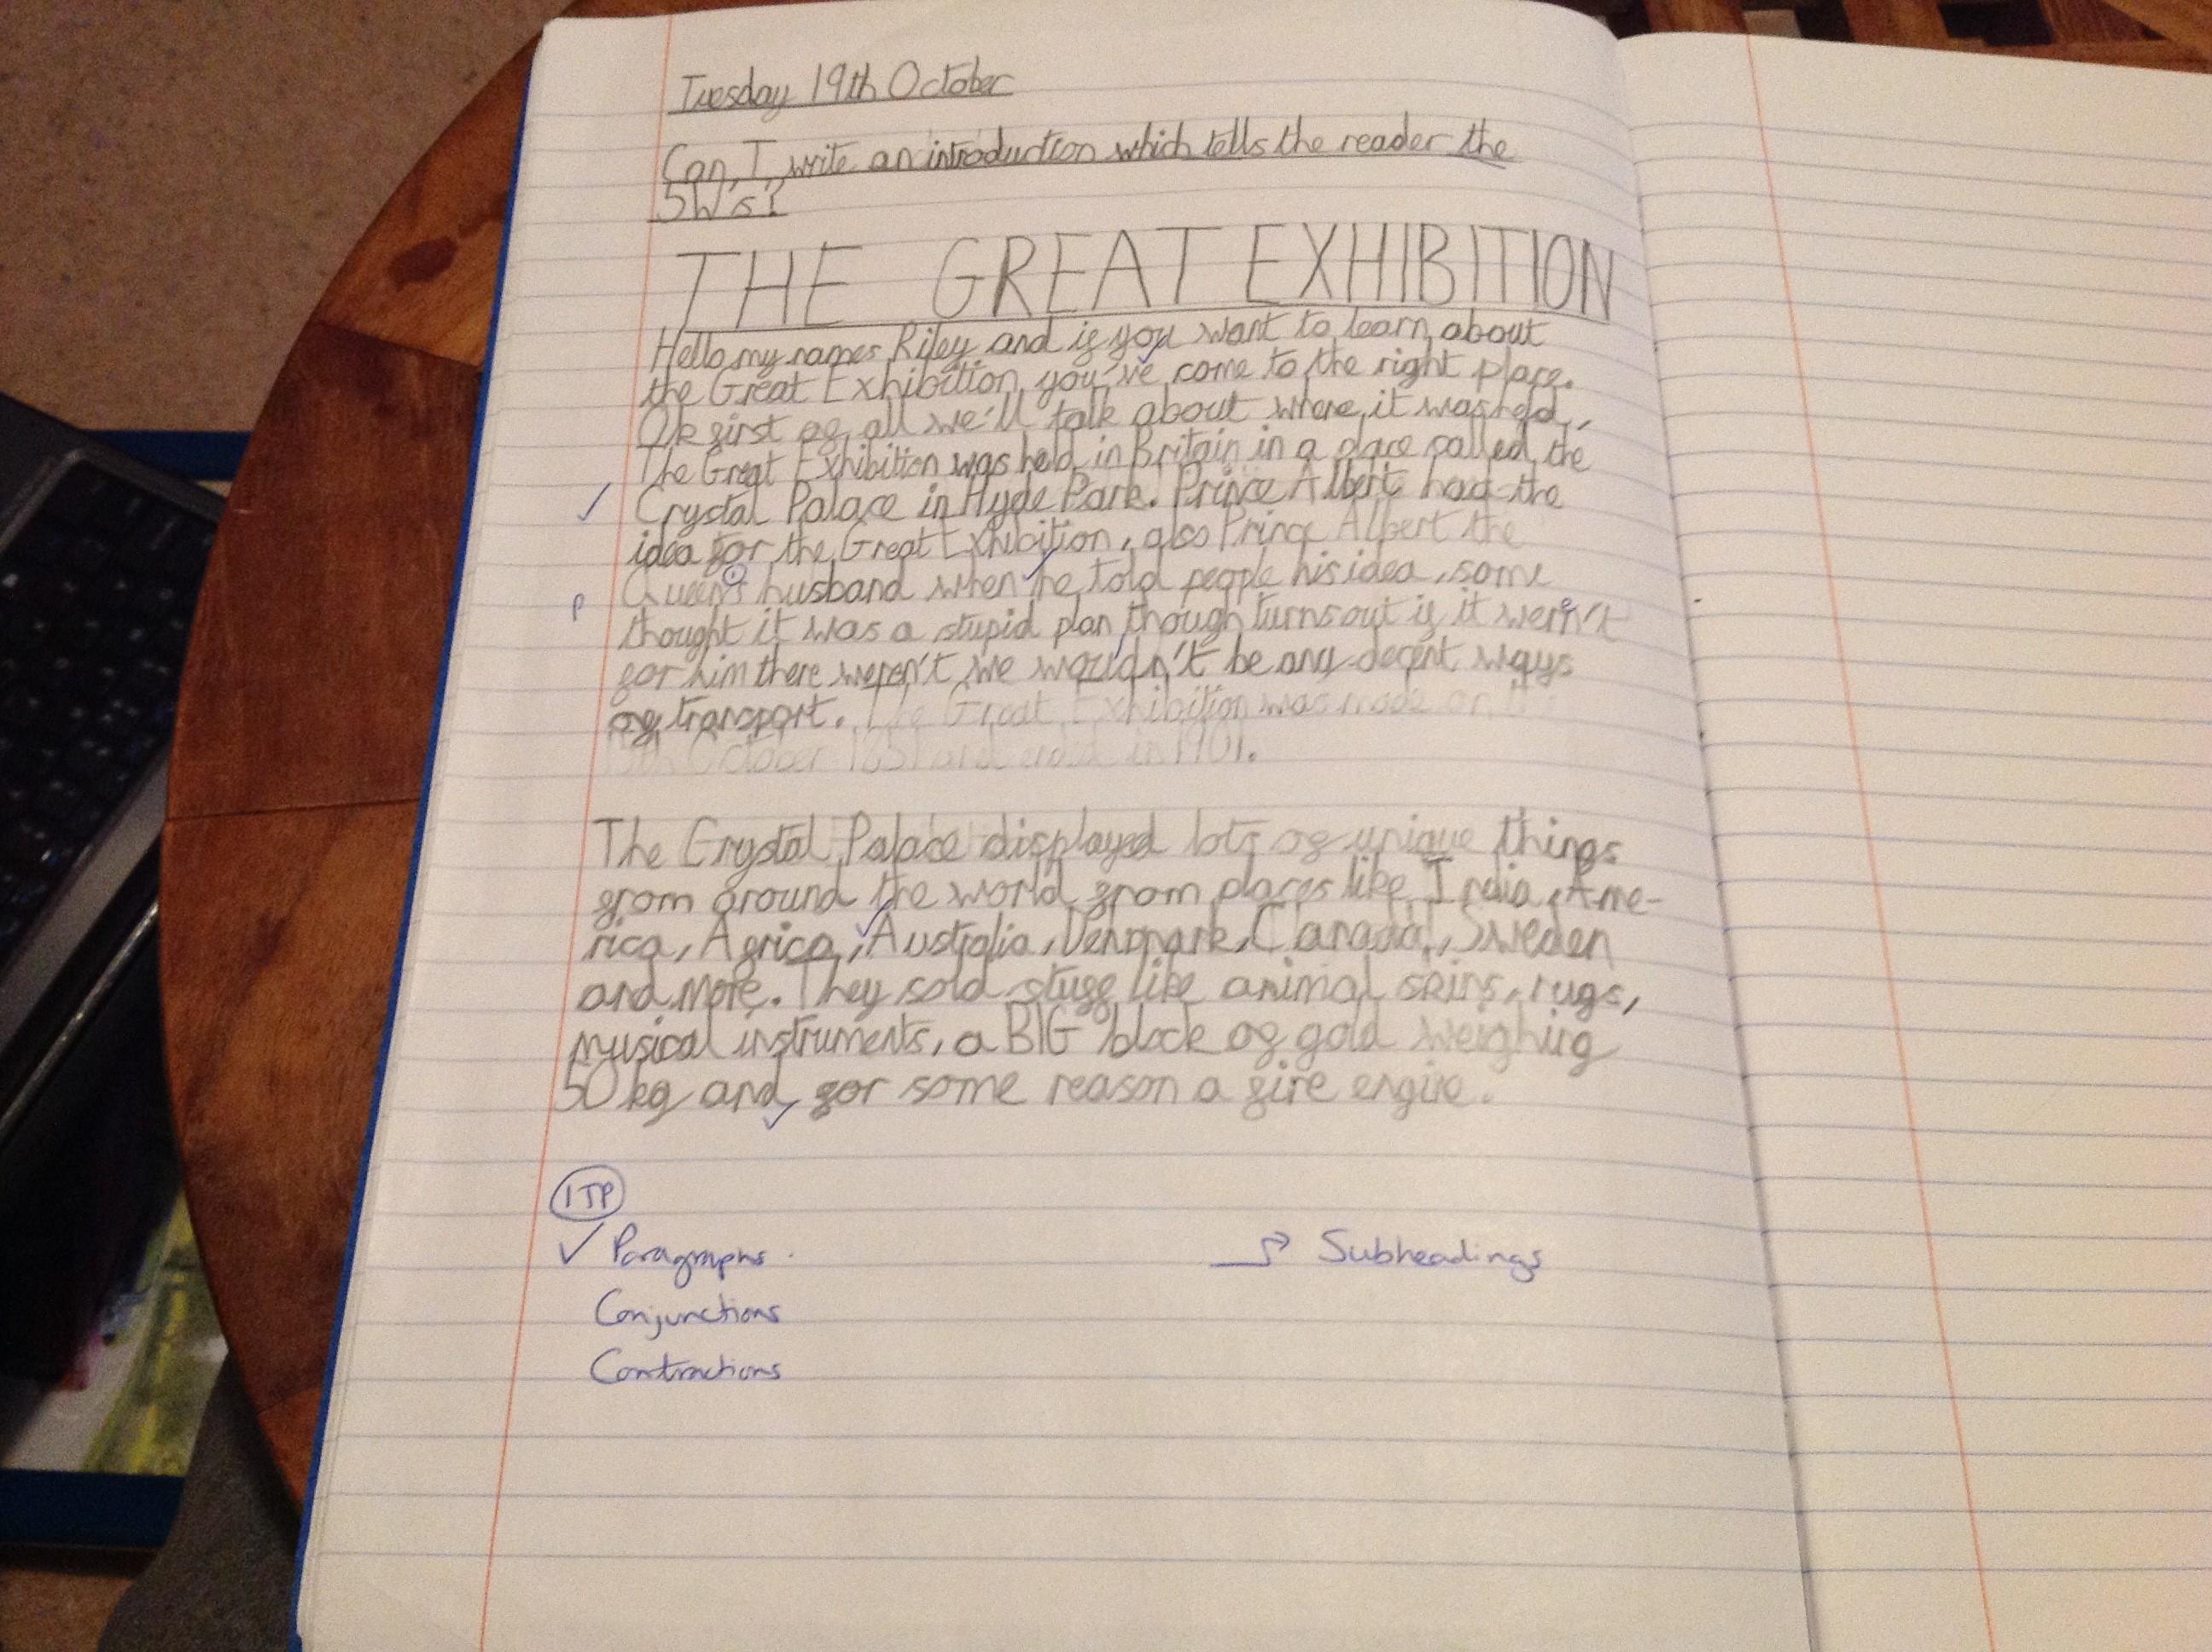 Tuesday 19th October
Can I write an introduction which tells the reader the
5W's?
THE GREAT EXHIBITION
Hello my names Riley and if you want to learn about
the Great Exhibition you've come to the right place.
Ok first of all we'll talk about where it was held,
The Great Exhibition was held in Britain in a place called the
Crystal Palace in Hyde Park. Prince Albert had the
idea for the Great Exhibition, also Prince Albert the
Queen's husband when he told people his idea, some
P
thought it was a stupid plan though turns out if it weren't
for him there weren't we wouldn't be any decent ways
of transport. The Great Exhibition was made on
October 1851 and ended in 1901.
The Crystal Palace displayed lots of unique things
from around the world from places like India, Ame-
rica, Africa, Australia, Denmark, Canada, Sweden
and more. They sold stuff like animal skins, rugs,
musical instruments, a BIG block of gold weighing
50kg and for some reason a fire engine.
ITP
✓ Paragraphs. → Subheadings
Conjunctions
Contractions